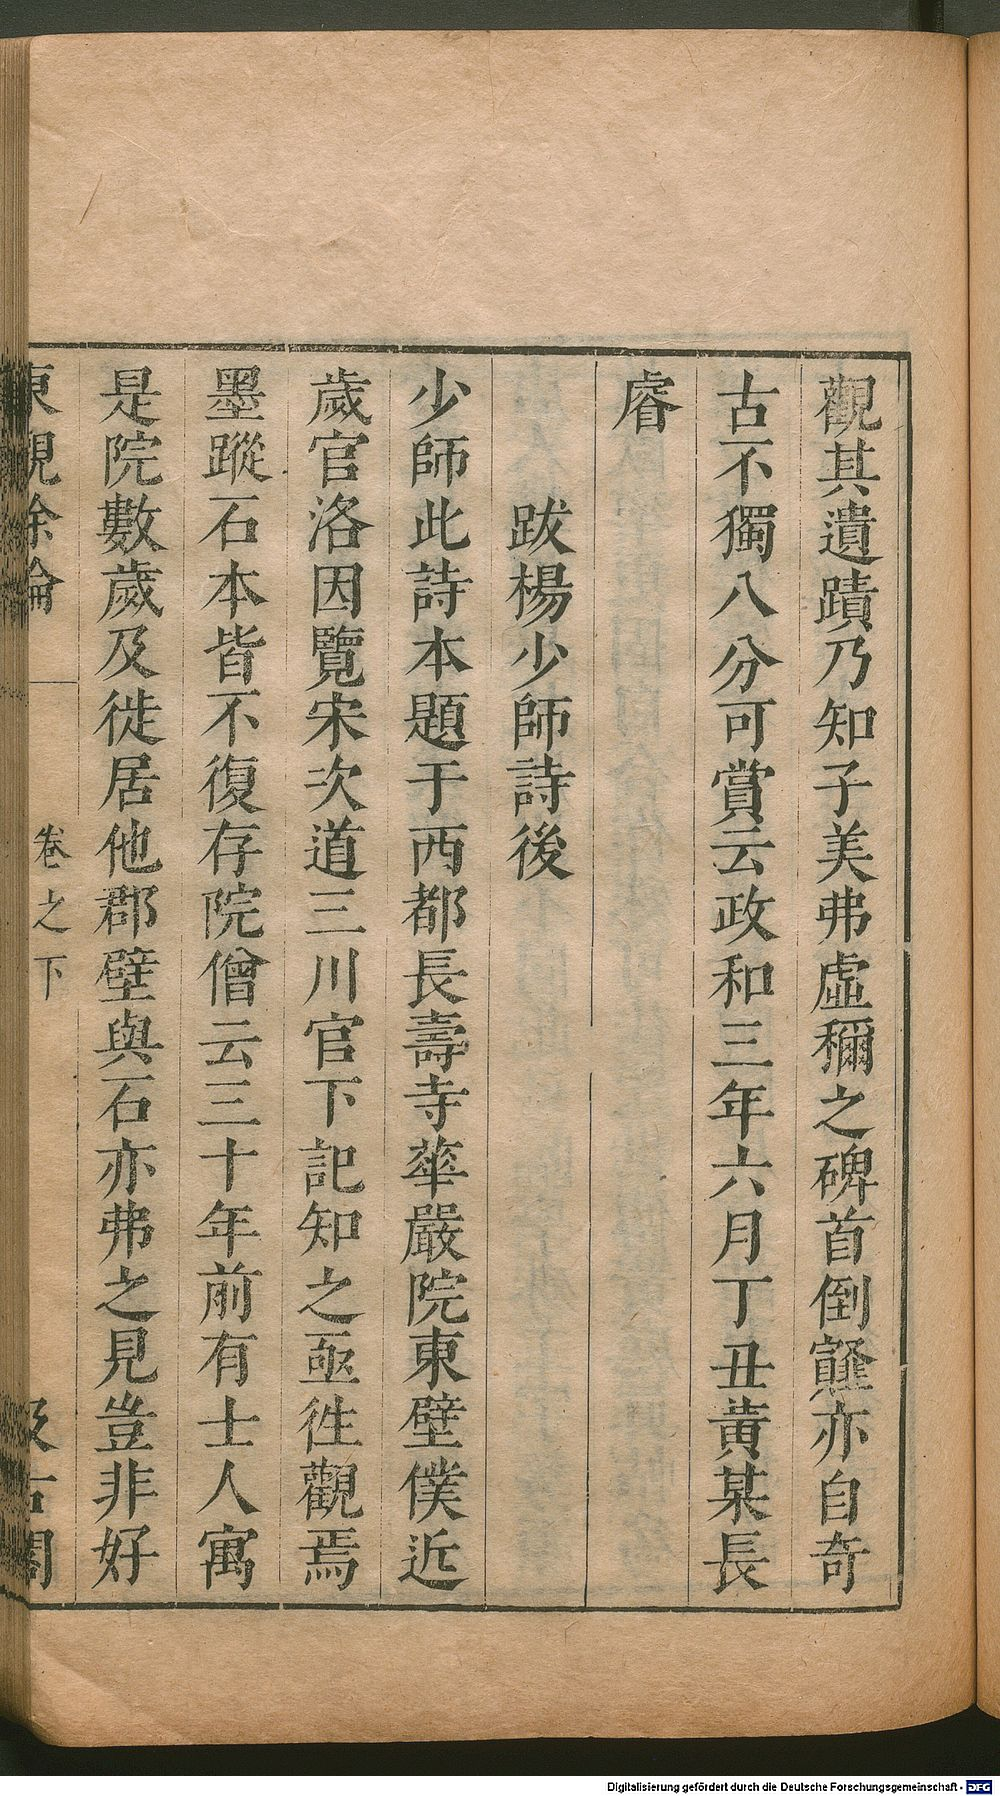 觀其遺蹟乃知子美弗虛稱之碑首倒薤亦自奇
古不獨八分可賞云政和三年六月丁丑黃某長
睿
跋楊少師詩後
少師此詩本題于西都長壽寺華嚴院東壁僕近
歲官洛因覽宋次道三川官下記知之亟徃觀焉
墨蹤石本皆不復存院僧云三十年前有士人寓
是院數歲及徙居他郡壁與石亦弗之見豈非好
東觀餘論 卷之下 汲古閣
Digitalisierung gefördert durch die Deutsche Forschungsgemeinschaft - DFG